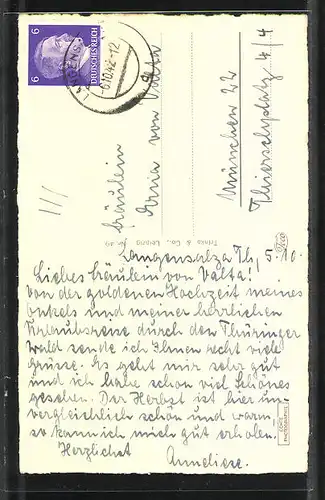 6 6
DEUTSCHES REICH
6.10.42.-12
Fräulein
Erna von Valta
München 22
Thierschplatz 4/4
Trinks & Co., Leipzig
Langensalza Th, 5.10.
Liebes Fräulein von Valta!
Von der goldenen Hochzeit meines
Onkels und meiner herrlichen
Urlaubsreise durch den Thüringer
Wald sende ich Ihnen recht viele
Grüsse. Es geht mir sehr gut
und ich habe schon viel schönes
gesehen. Der Herbst ist hier un-
vergleichlich schön und warm,
so kann ich mich gut erholen.
Herzlichst
Anneliese.